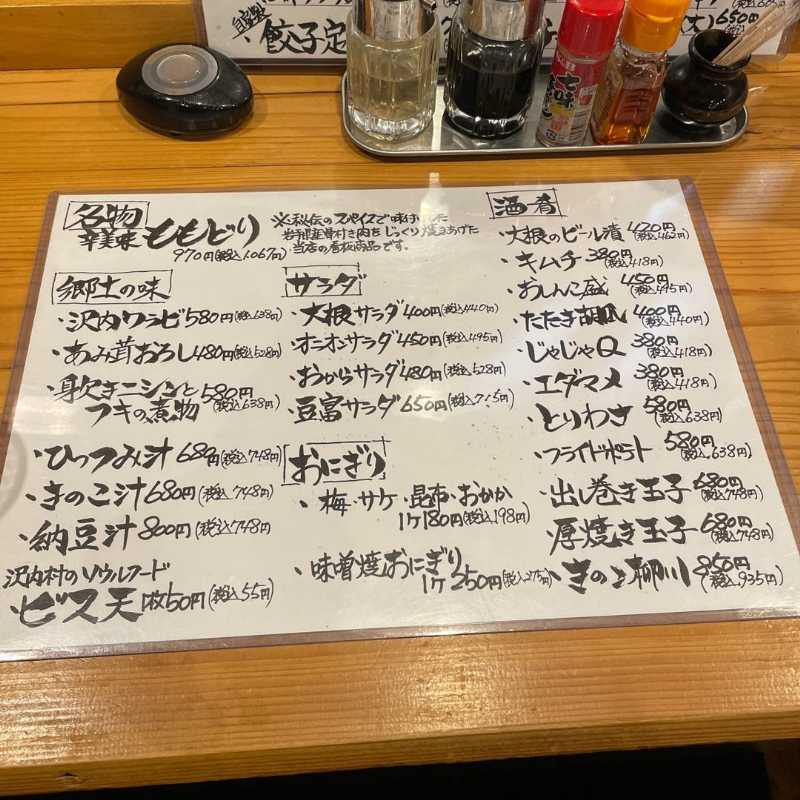 自家製
餃子定
650円
七味
名物
辛美味ももどり
970円(税込1,067円)
※秘伝のスパイスで味付けした
岩手県産骨付き肉をじっくり焼きあげた
当店の看板商品です。
郷土の味
・沢内ワラビ580円(税込638円)
・あみ茸おろし480円(税込528円)
・身欠きニシンと
フキの煮物580円(税込638円)
・ひっつみ汁680円(税込748円)
・きのこ汁680円(税込748円)
・納豆汁800円(税込748円)
沢内村のソウルフード
・ビス天1枚50円(税込55円)
サラダ
・大根サラダ400円(税込440円)
・オニオンサラダ450円(税込495円)
・おからサラダ480円(税込528円)
・豆富サラダ650円(税込715円)
おにぎり
・梅・サケ・昆布・おかか
1ケ180円(税込198円)
・味噌焼おにぎり
1ケ250円(税込275円)
酒肴
・大根のビール漬420円(税込462円)
・キムチ380円(税込418円)
・おしんこ盛450円(税込495円)
・たたき胡瓜400円(税込440円)
・じゃじゃQ380円(税込418円)
・エダマメ380円(税込418円)
・とりわさ580円(税込638円)
・フライドポテト580円(税込638円)
・出し巻き玉子680円(税込748円)
厚焼き玉子680円(税込748円)
・きのこ柳川850円(税込935円)